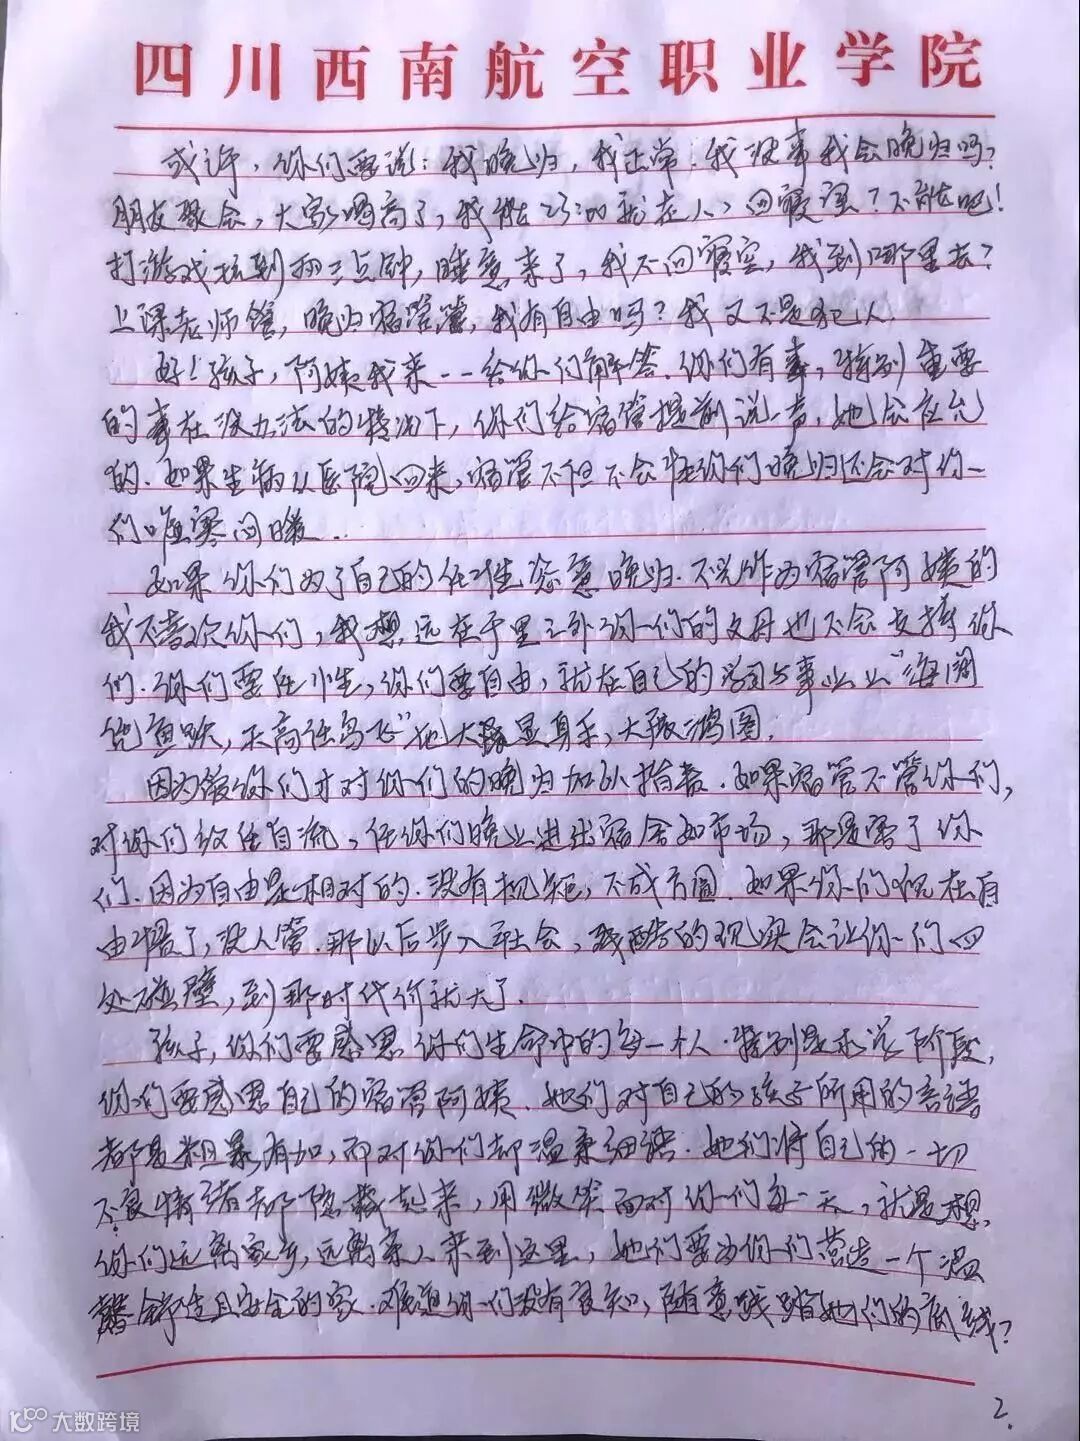 四川西南航空职业学院
或许，你们要说：我晚归，我正常．我没事我会晚归吗？
朋友聚会，大家喝高了，我能23:00就在人人回寝室？不能吧！
打游戏玩到两三点钟，睡意来了，我不回寝室，我到哪里去？
上课老师管，晚归宿管管，我有自由吗？我又不是犯人．
好！孩子，阿姨我来一一给你们解答．你们有事，特别重要
的事在没办法的情况下，你们给宿管提前说一声，她会应允
的．如果生病从医院回来，宿管不但不会怪你们晚归还会对你
们嘘寒问暖．
如果你们为了自己的任性恣意晚归．不光作为宿管阿姨的
我不喜欢你们，我想远在千里之外你们的父母也不会支持你
们．你们要任性，你们要自由，就在自己的学习与事业上"海阔
凭鱼跃，天高任鸟飞"他大显身手，大展鸿图．
因为爱你们才对你们的晚归加以指责．如果宿管不管你们，
对你们放任自流，任你们晚上进出宿舍如市场，那是害了你
们．因为自由是相对的．没有规矩，不成方圆．如果你们现在自
由惯了，没人管．那以后步入社会，残酷的现实会让你们四
处碰壁，到那时代价就大了．
孩子，你们要感恩你们生命中的每一个人．特别是求学阶段，
你们要感恩自己的宿管阿姨．她们对自己的孩子所用的言语
都是粗暴有加，而对你们却温柔细语．她们将自己的一切
不良情绪都隐藏起来，用微笑面对你们每一天，就是想，
你们远离家乡，远离亲人来到这里，她们要为你们营造一个温
馨舒适且安全的家．难道你们没有良知，随意践踏她们的底线？
2.
大数跨境